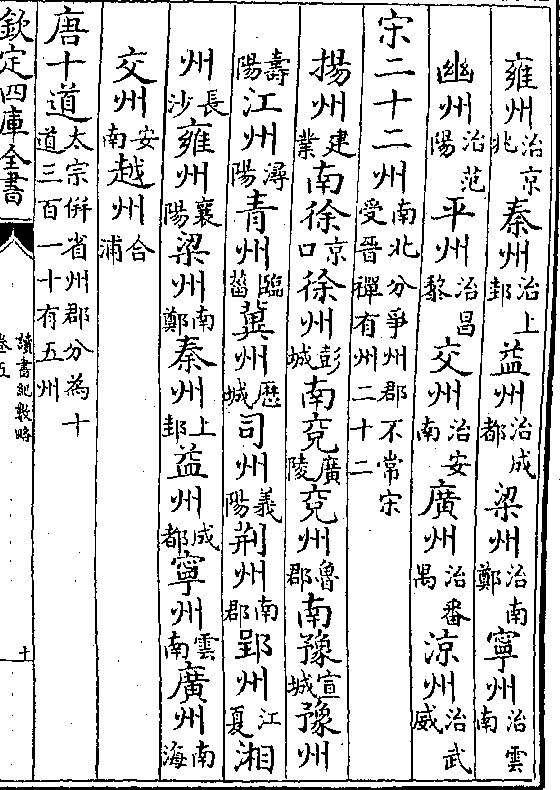 雍州治京兆秦州治上邽益州治成都梁州治南鄭寧州治雲南
幽州治范陽平州治昌黎交州治安南廣州治番禺涼州治武威
宋二十二州南北分爭州郡不常宋受晉禪有州二十二
揚州建業南徐京口徐州彭城南兗廣陵兗州魯郡南豫宣城豫州
壽陽江州潯陽青州臨菑冀州歷城司州義陽荊州南郡郢州江夏湘
州長沙雍州襄陽梁州南鄭秦州上邽益州成都寧州雲南廣州南海
交州安南越州合浦
唐十道太宗併省州郡分為十道三百一十有五州
欽定四庫全書
讀書紀數略
卷五